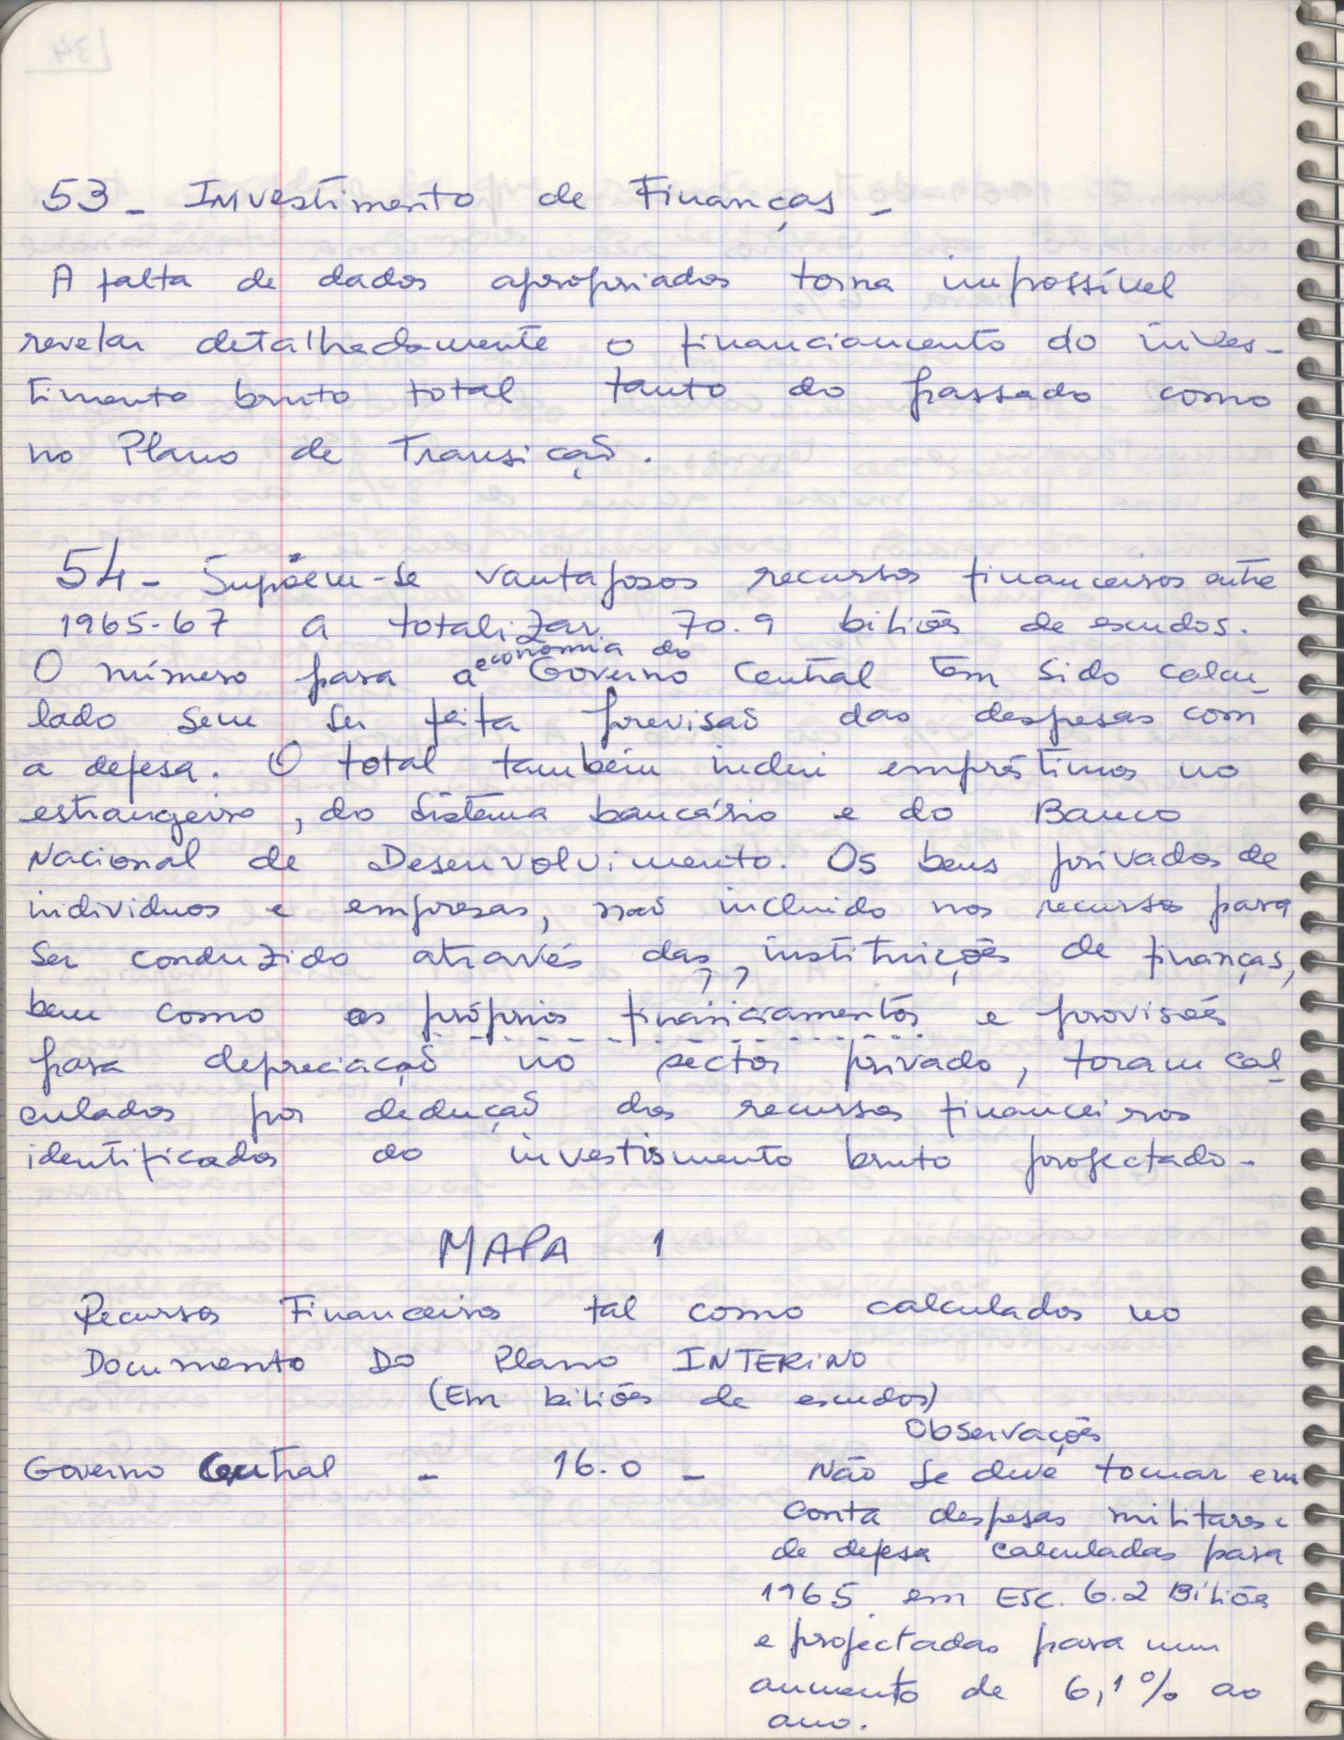 53 - Investimento de Finanças -
A falta de dados apropriados torna impossível
revelar detalhadamente o financiamento do inves-
timento bruto total tanto do passado como
no Plano de Transição.
54 - Supõem-se vantajosos recursos financeiros entre
1965-67 a totalizar 70.9 biliões de escudos.
O número para a economia do Governo Central tem sido calcu-
lado sem ser feita previsão das despesas com
a defesa. O total também inclui empréstimos no
estrangeiro, do sistema bancário e do Banco
Nacional de Desenvolvimento. Os bens privados de
individuos e empresas, não incluido nos recursos para
ser conduzido através das instituições de finanças,
bem como os próprios financiamentos ?? e provisões
para depreciação no sector privado, foram cal-
culados por dedução dos recursos financeiros
identificados do investimento bruto projectado -
MAPA 1
Recursos Financeiros tal como calculados no
Documento DO Plano INTERINO
(Em biliões de escudos)
Observações
Governo Central - 16.0 - Não se deve tomar em
conta despesas militares e
de defesa calculadas para
1965 em Esc. 6.2 Biliões
e projectadas para um
aumento de 6,1% ao
ano.